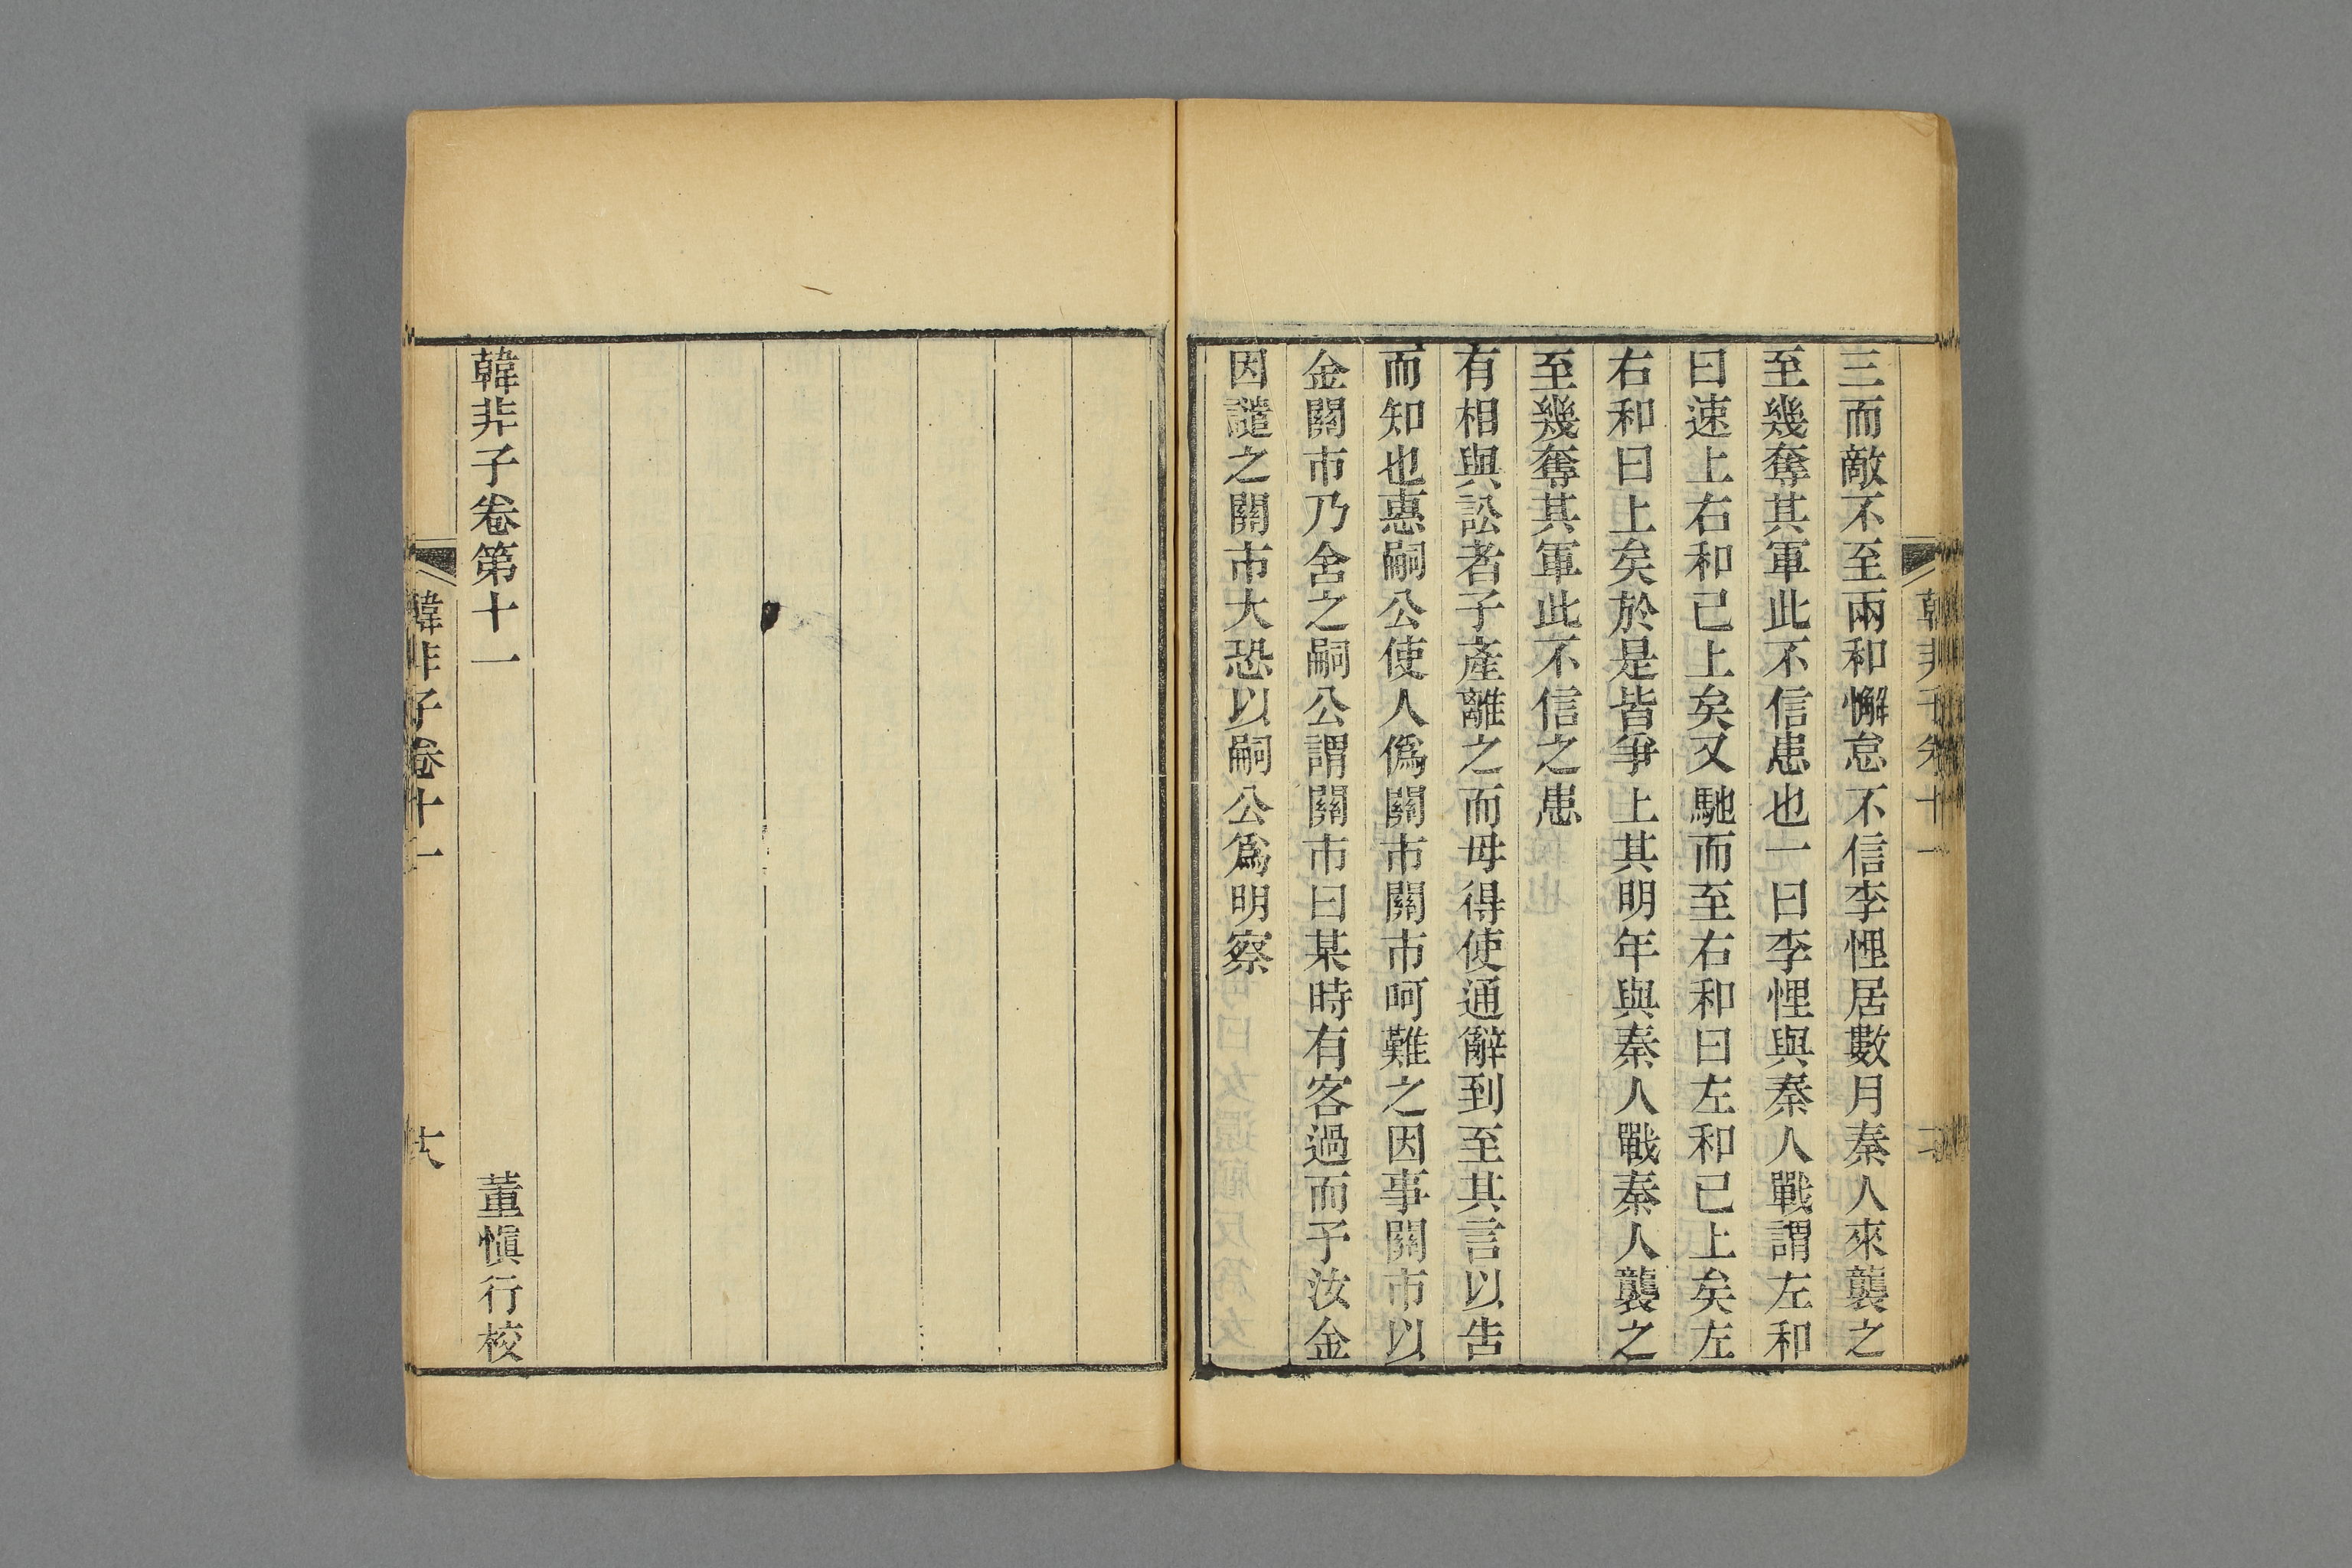 三而敵不至兩和懈怠不信李悝居數月秦人來襲之
至幾奪其軍此不信患也一曰李悝與秦人戰謂左和
曰速上右和已上矣又馳而至右和曰左和已上矣左
右和曰上矣於是皆爭上其明年與秦人戰秦人襲之
至幾奪其軍此不信之患
有相與訟者子產離之而毋得使通辭到至其言以告
而知也惠嗣公使人僞關市關市呵難之因事關市以
金關市乃舍之嗣公謂關市曰某時有客過而予汝金
因譴之關市大恐以嗣公爲明察
韓非子卷第十一
董愼行校
韓非子卷十一